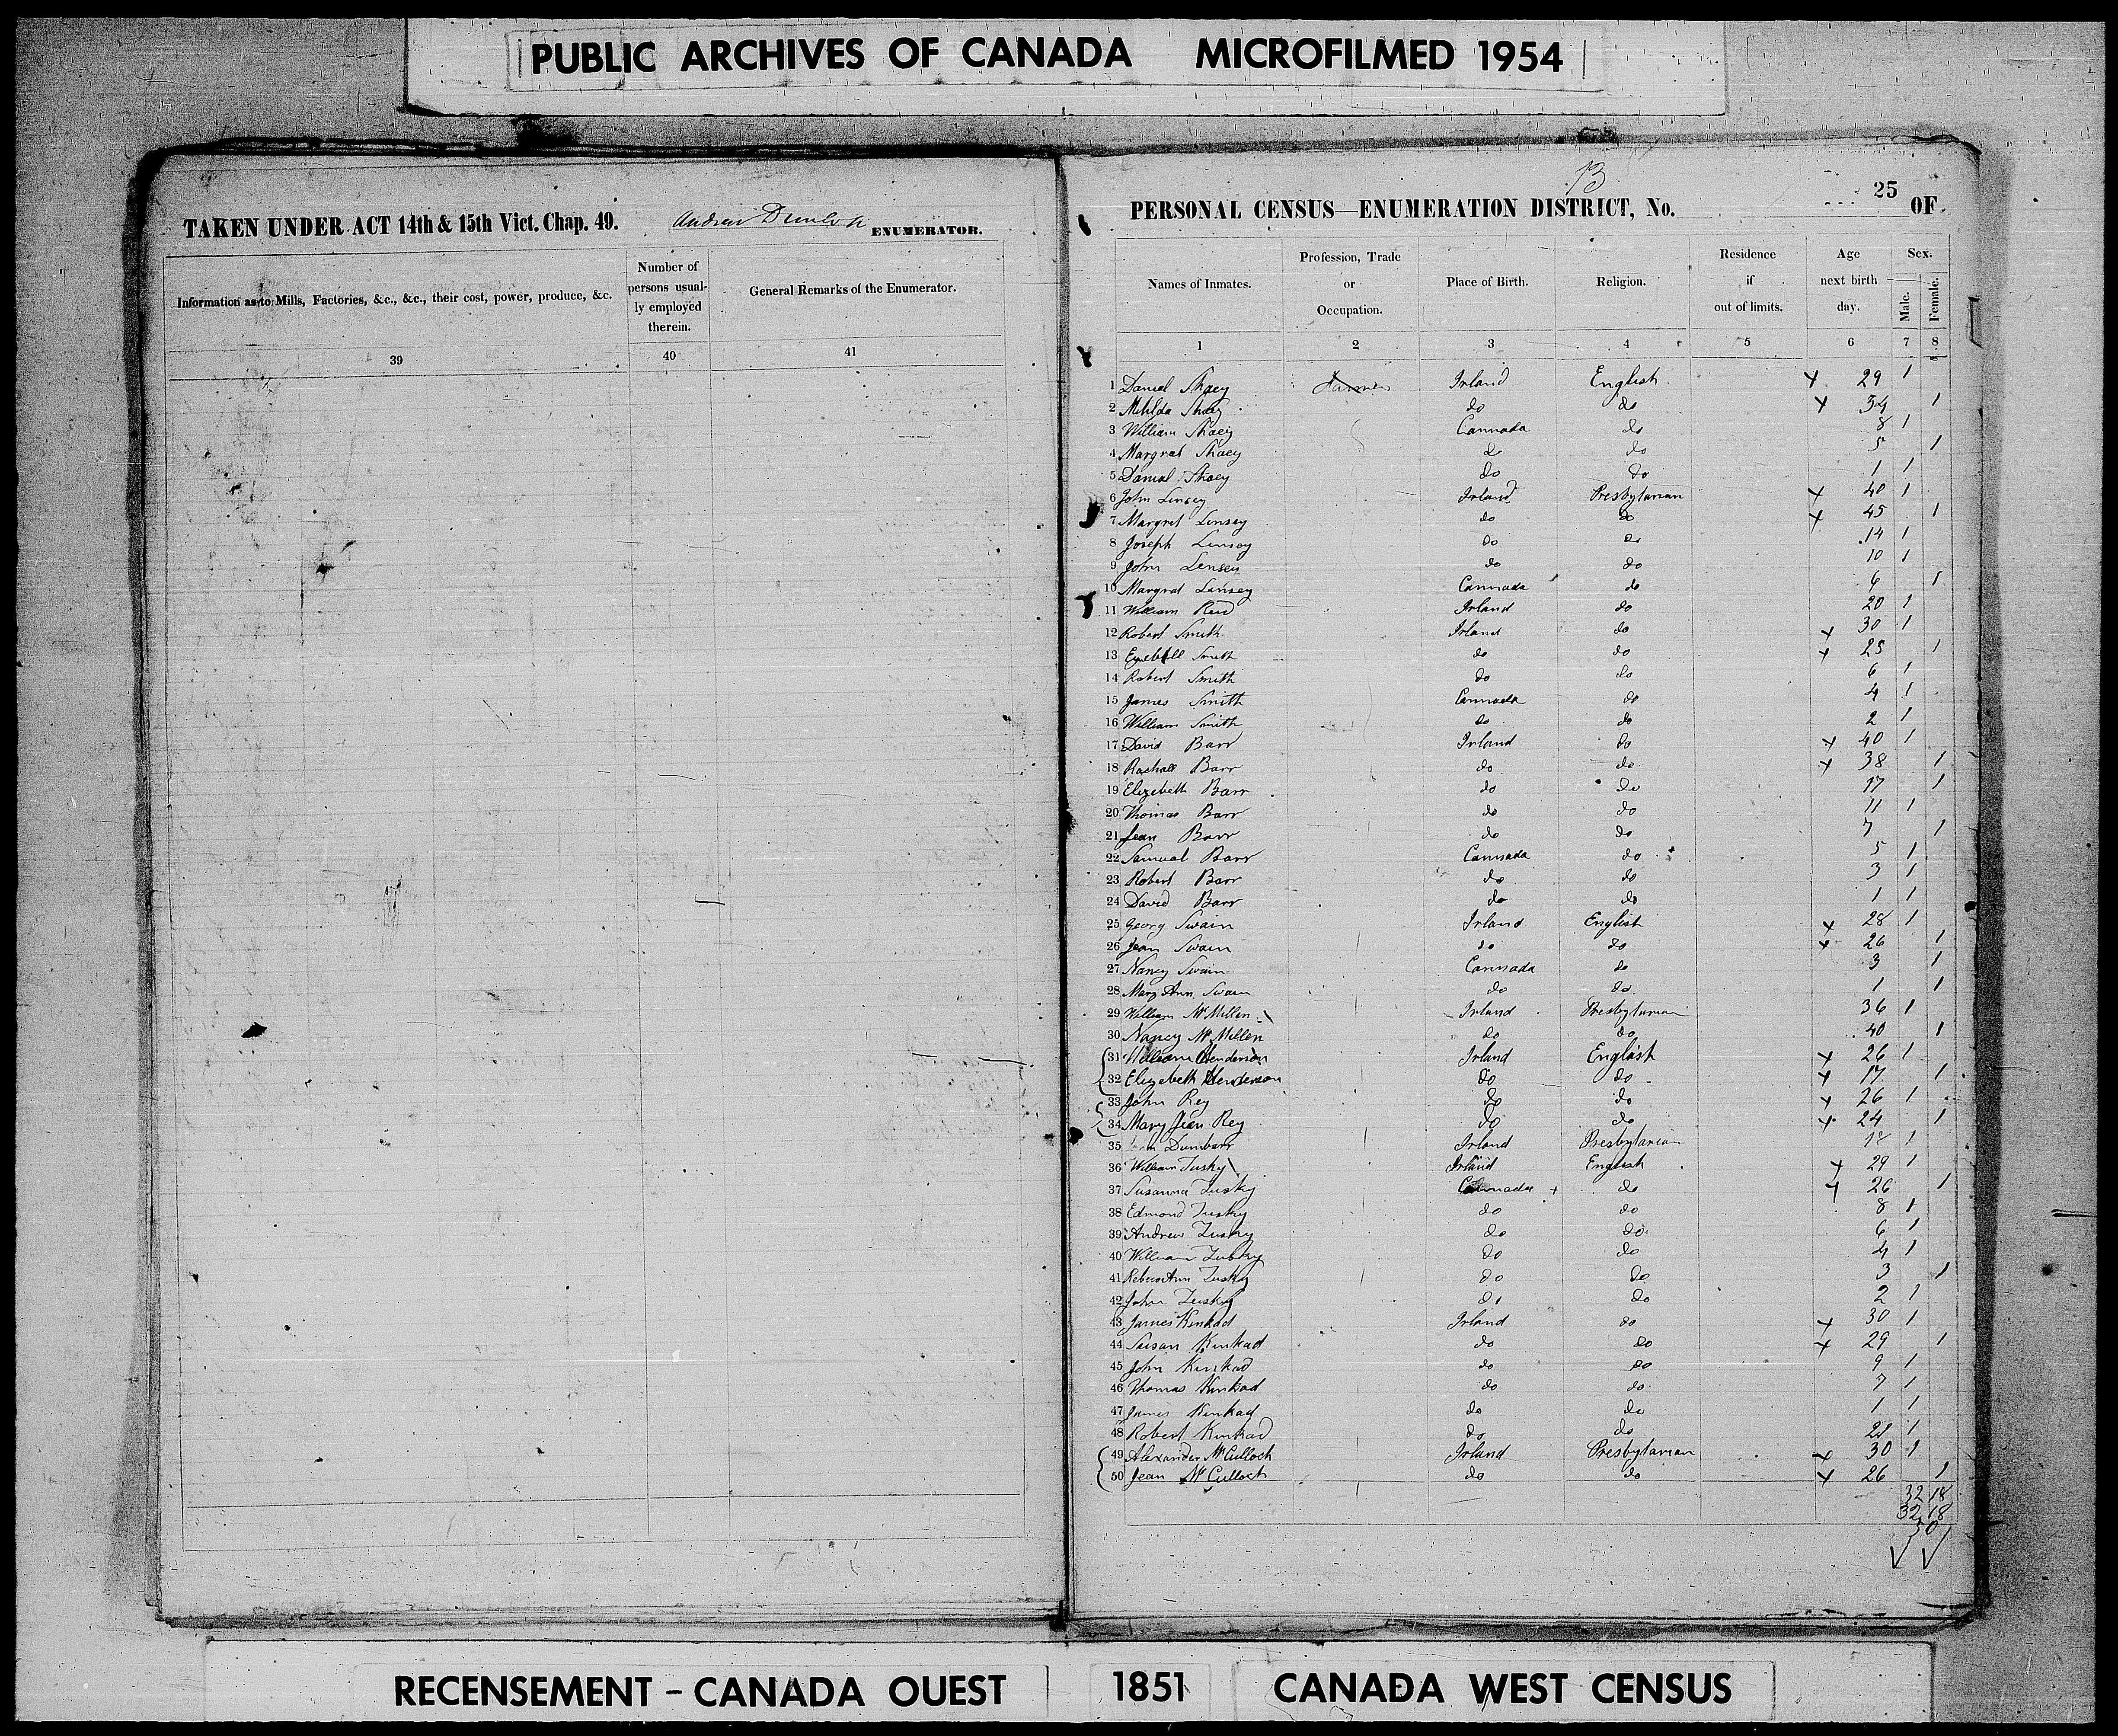 PUBLIC ARCHIVES OF CANADA MICROFILMED 1954
TAKEN UNDER ACT 14th & 15th Vict. Chap. 49. Andrew Dunlop ENUMERATOR.
Information as to Mills, Factories, &c., &c., their cost, power, produce, &c.
Number of persons usually employed therein.
General Remarks of the Enumerator.
39 40 41
13
25
PERSONAL CENSUS—ENUMERATION DISTRICT, No. OF
Names of Inmates. Profession, Trade or Occupation. Place of Birth. Religion. Residence if out of limits. Age next birth day. Sex. Male. Female.
1 2 3 4 5 6 7 8
1 Danial Shaey Farmer Irland English + 29 1
2 Matilda Shaey do do + 34 1
3 William Shaey Cannada do 8 1
4 Margrat Shaey do do 5 1
5 Danial Shaey do do 1 1
6 John Linsey Irland Presbytarian + 40 1
7 Margret Linsey do do + 45 1
8 Joseph Linsey do do 14 1
9 John Linsey do do 10 1
10 Margrat Linsey Cannada do 6 1
11 William Reid Irland do 20 1
12 Robert Smith Irland do + 30 1
13 Smith do do + 25 1
14 Robert Smith do do 6 1
15 James Smith Cannada do 4 1
16 William Smith do do 2 1
17 David Barr Irland do + 40 1
18 Rachall Barr do do + 38 1
19 Elizebeth Barr do do 17 1
20 Thomas Barr do do 11 1
21 Jean Barr do do 7 1
22 Samual Barr Cannada do 5 1
23 Robert Barr do do 3 1
24 David Barr do do 1 1
25 Georg Swain Irland English + 28 1
26 Jean Swain do do + 26 1
27 Nancy Swain Cannada do 3 1
28 Mary Ann Swain do do 1 1
29 William McMillen Irland Presbytarian 36 1
30 Nancy McMillen do do 40 1
31 William Henderson Irland English + 26 1
32 Elizebeth Henderson do do + 17 1
33 John Rey do do + 26 1
34 Mary Jean Rey do do + 24 1
35 Dumbarr Irland Presbytarian 18 1
36 William Tusky Irland English + 29 1
37 Susanna Tusky Cannada + do + 26 1
38 Edmond Tusky do do 8 1
39 Andrew Tusky do do 6 1
40 William Tusky do do 4 1
41 Rebeca Ann Tusky do do 3 1
42 John Tusky do do 2 1
43 James Kinkad Irland do + 30 1
44 Susan Kinkad do do + 29 1
45 John Kinkad do do 9 1
46 Thomas Kinkad do do 7 1
47 James Kinkad do do 1 1
48 Robert Kinkad do do 1
49 Alexander McCulloch Irland Presbytarian + 30 1
50 Jean McCulloch do do + 26 1
32 18
32 18
50
RECENSEMENT - CANADA OUEST 1851 CANADA WEST CENSUS